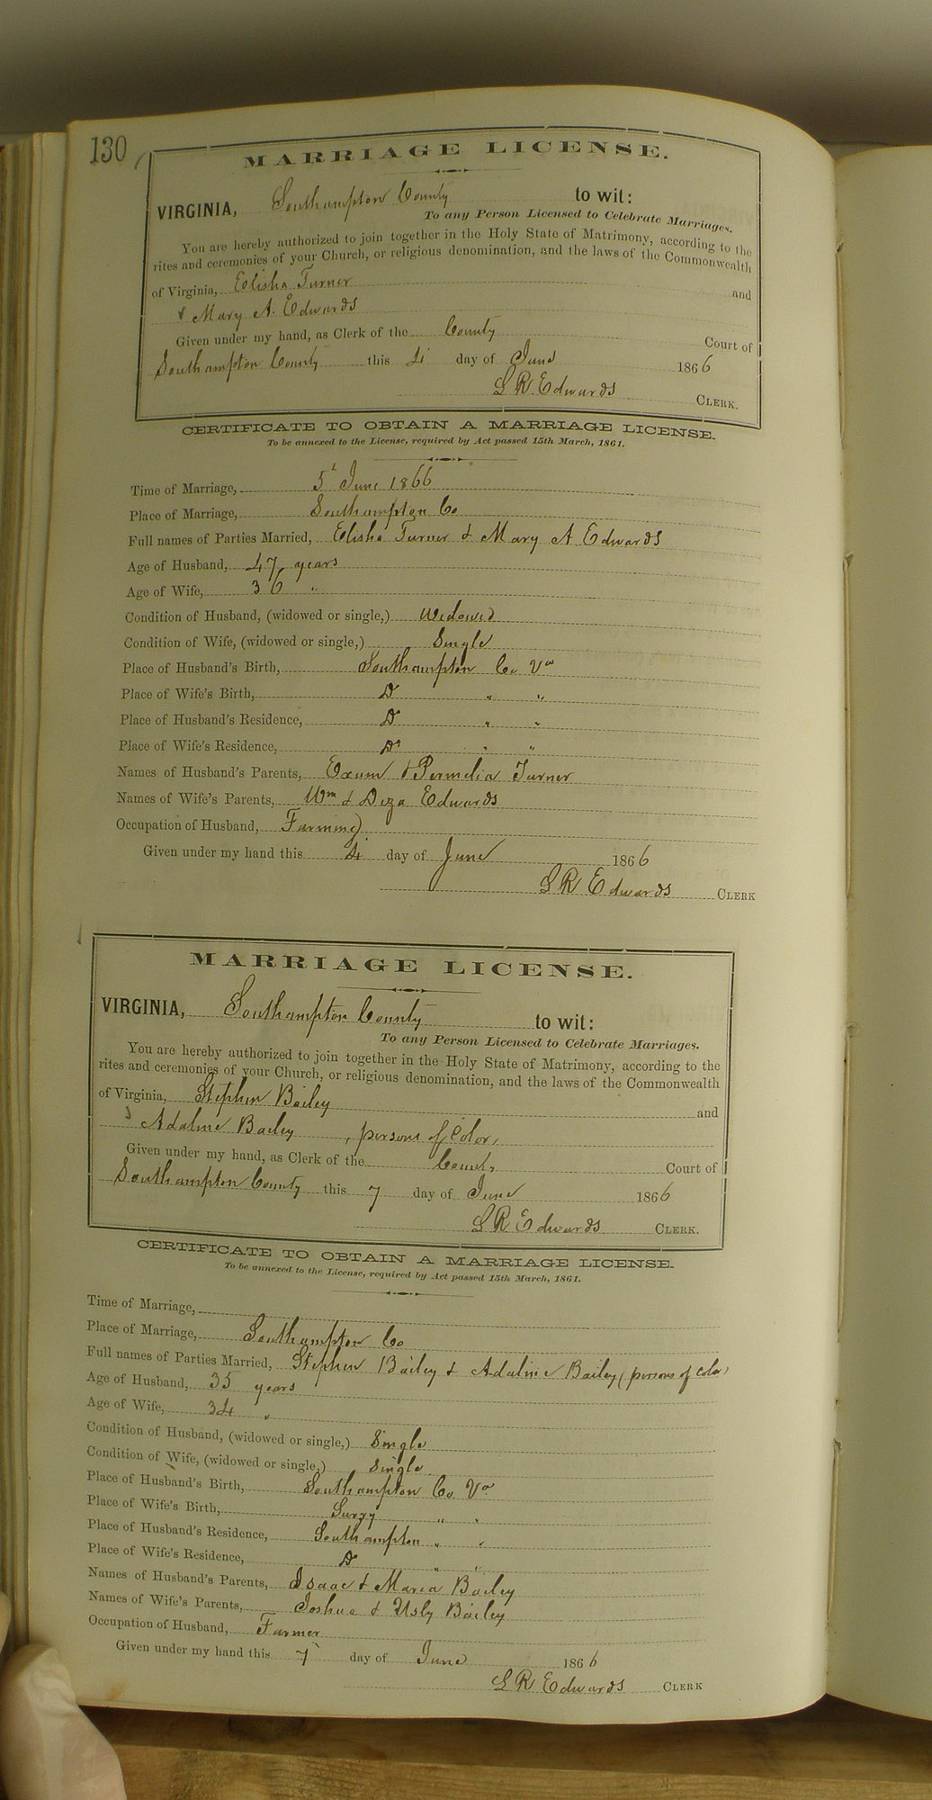 130
MARRIAGE LICENSE.
VIRGINIA, Southampton County to wit:
To any Person Licensed to Celebrate Marriages.
You are hereby authorized to join together in the Holy State of Matrimony, according to the
rites and ceremonies of your Church, or religious denomination, and the laws of the Commonwealth
of Virginia, Elisha Turner and
& Mary A. Edwards
Given under my hand, as Clerk of the County Court of
Southampton County this 4 day of June 1866
L R Edwards CLERK.
CERTIFICATE TO OBTAIN A MARRIAGE LICENSE.
To be annexed to the License, required by Act passed 15th March, 1861.
Time of Marriage, 5th June 1866
Place of Marriage, Southampton Co
Full names of Parties Married, Elisha Turner & Mary A Edwards
Age of Husband, 47 years
Age of Wife, 36 "
Condition of Husband, (widowed or single,) Widowed
Condition of Wife, (widowed or single,) Single
Place of Husband's Birth, Southampton Co Va
Place of Wife's Birth, Do " "
Place of Husband's Residence, Do " "
Place of Wife's Residence, Do " "
Names of Husband's Parents, Exum & Permelia Turner
Names of Wife's Parents, Wm & Diza Edwards
Occupation of Husband, Farming
Given under my hand this 4 day of June 1866
L R Edwards CLERK
MARRIAGE LICENSE.
VIRGINIA, Southampton County to wit:
To any Person Licensed to Celebrate Marriages.
You are hereby authorized to join together in the Holy State of Matrimony, according to the
rites and ceremonies of your Church, or religious denomination, and the laws of the Commonwealth
of Virginia, Stephen Bailey and
& Adaline Bailey, persons of Color,
Given under my hand, as Clerk of the County Court of
Southampton County this 7 day of June 1866
L R Edwards CLERK.
CERTIFICATE TO OBTAIN A MARRIAGE LICENSE.
To be annexed to the License, required by Act passed 15th March, 1861.
Time of Marriage,
Place of Marriage, Southampton Co
Full names of Parties Married, Stephen Bailey & Adaline Bailey (persons of Color)
Age of Husband, 35 years
Age of Wife, 34 "
Condition of Husband, (widowed or single,) Single
Condition of Wife, (widowed or single,) Single
Place of Husband's Birth, Southampton Co Va
Place of Wife's Birth, Surry " "
Place of Husband's Residence, Southampton " "
Place of Wife's Residence, Do " "
Names of Husband's Parents, Isaac & Maria Bailey
Names of Wife's Parents, Joshua & Usly Bailey
Occupation of Husband, Farmer
Given under my hand this 7 day of June 1866
L R Edwards CLERK